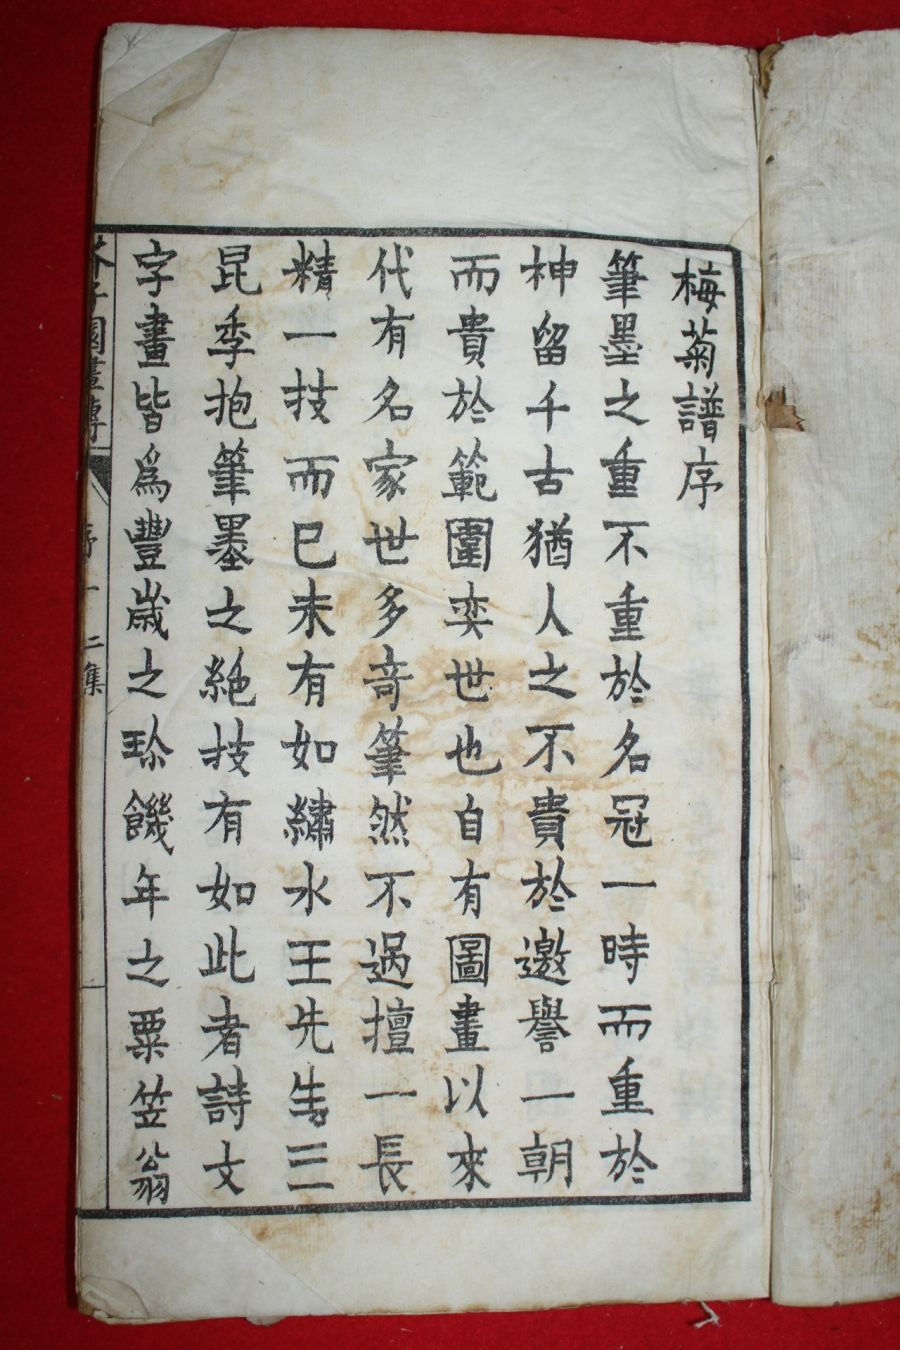 梅菊譜序
筆墨之重不重於名冠一時而重於
神留千古猶人之不貴於邀譽一朝
而貴於範圍奕世也自有圖畫以來
代有名家世多竒筆然不過擅一長
精一技而已未有如繡水王先生三
昆季抱筆墨之絕技有如此者詩文
字畫皆爲豐歲之珎饑年之粟笠翁
芥子園畫傳 序 二集 一